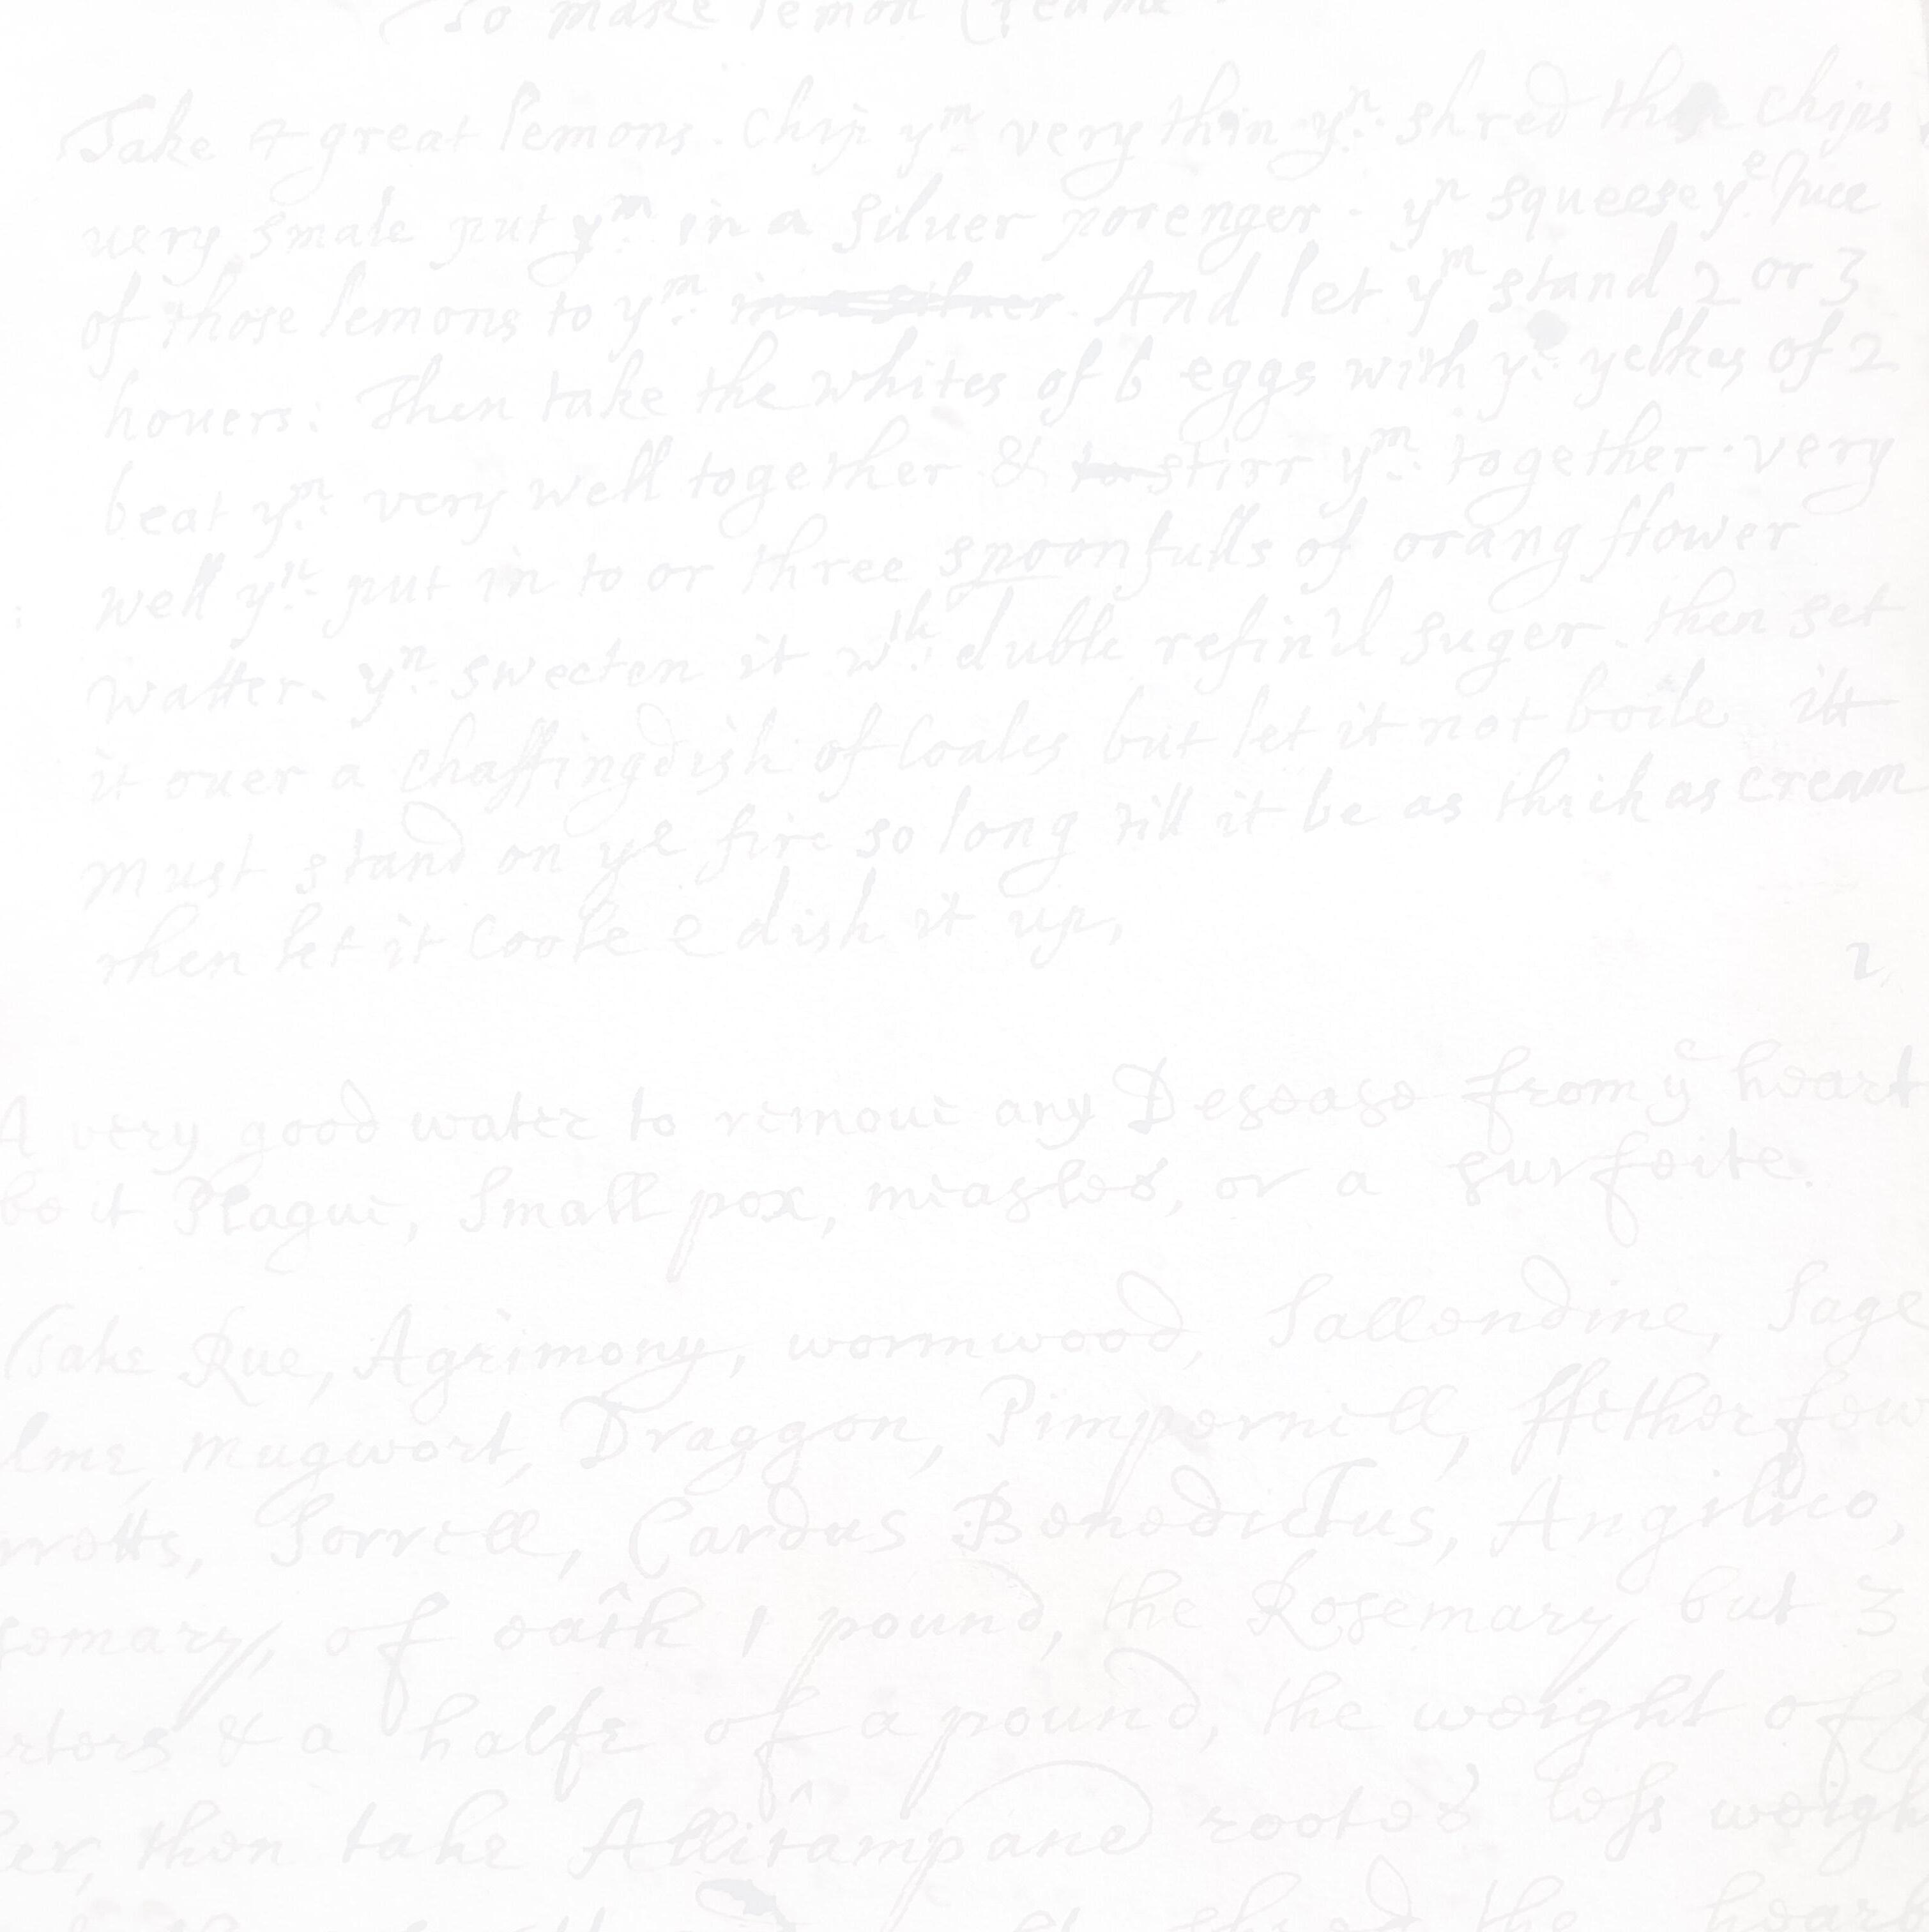 To make lemon Creame
Take 4 great lemons. Chip ym very thin yn shred thin Chips
very smale put ym in a silver porenger. yn squeese ye juce
of those lemons to ym in a silver. And let ym stand 2 or 3
houers: Then take the whites of 6 eggs with ye yelkes of 2
beat ym very well together & to stirr ym together very
well yn put in to or three spoonfulls of orang flower
watter. yn sweeten it wth duble refin'd suger. then set
it ouer a chaffingdish of Coales but let it not boile itt
must stand on ye fire so long till it be as thick as cream
then let it coole & dish it up,
2
A very good water to remove any Desease from ye heart
be it Plague, Small pox, measles, or a surfeite.
Take Rue, Agrimony, wormwood, Sallendine, Sage
lme, Mugwort, Draggon, Pimpernill, ffetherfow
rrotts, Sorrell, Cardus Benedictus, Angilico,
semary, of each 1 pound, the Rosemary but 3
rters & a halfe of a pound, the weight of
er, then take Allicampane rootes less weigh
shred the heart